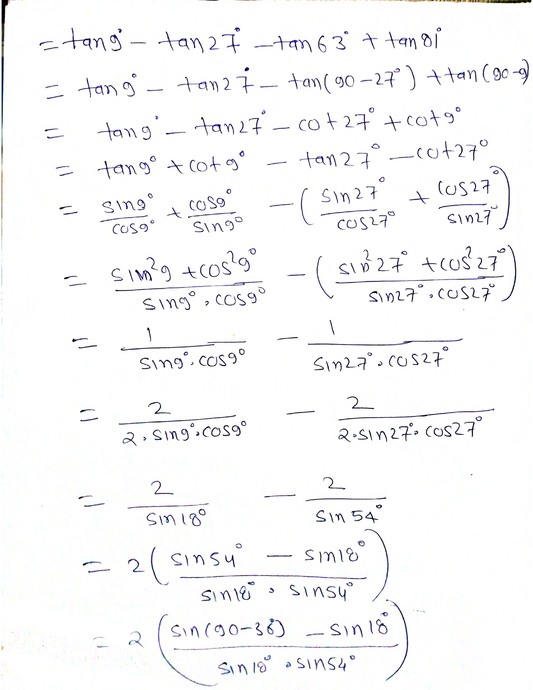 = tan9° - tan27° - tan63° + tan81°
= tan9° - tan27° - tan(90-27°) + tan(90-9)
= tan9° - tan27° - cot27° + cot9°
= tan9° + cot9° - tan27° - cot27°
= sin9°/cos9° + cos9°/sin9° - (sin27°/cos27° + cos27°/sin27°)
= (sin²9 + cos²9°)/(sin9°.cos9°) - ((sin²27° + cos²27°)/(sin27°.cos27°))
= 1/(sin9°.cos9°) - 1/(sin27°.cos27°)
= 2/(2.sin9°.cos9°) - 2/(2.sin27°.cos27°)
= 2/sin18° - 2/sin54°
= 2((sin54° - sin18°)/(sin18°.sin54°))
= 2((sin(90-36°) - sin18°)/(sin18°.sin54°))